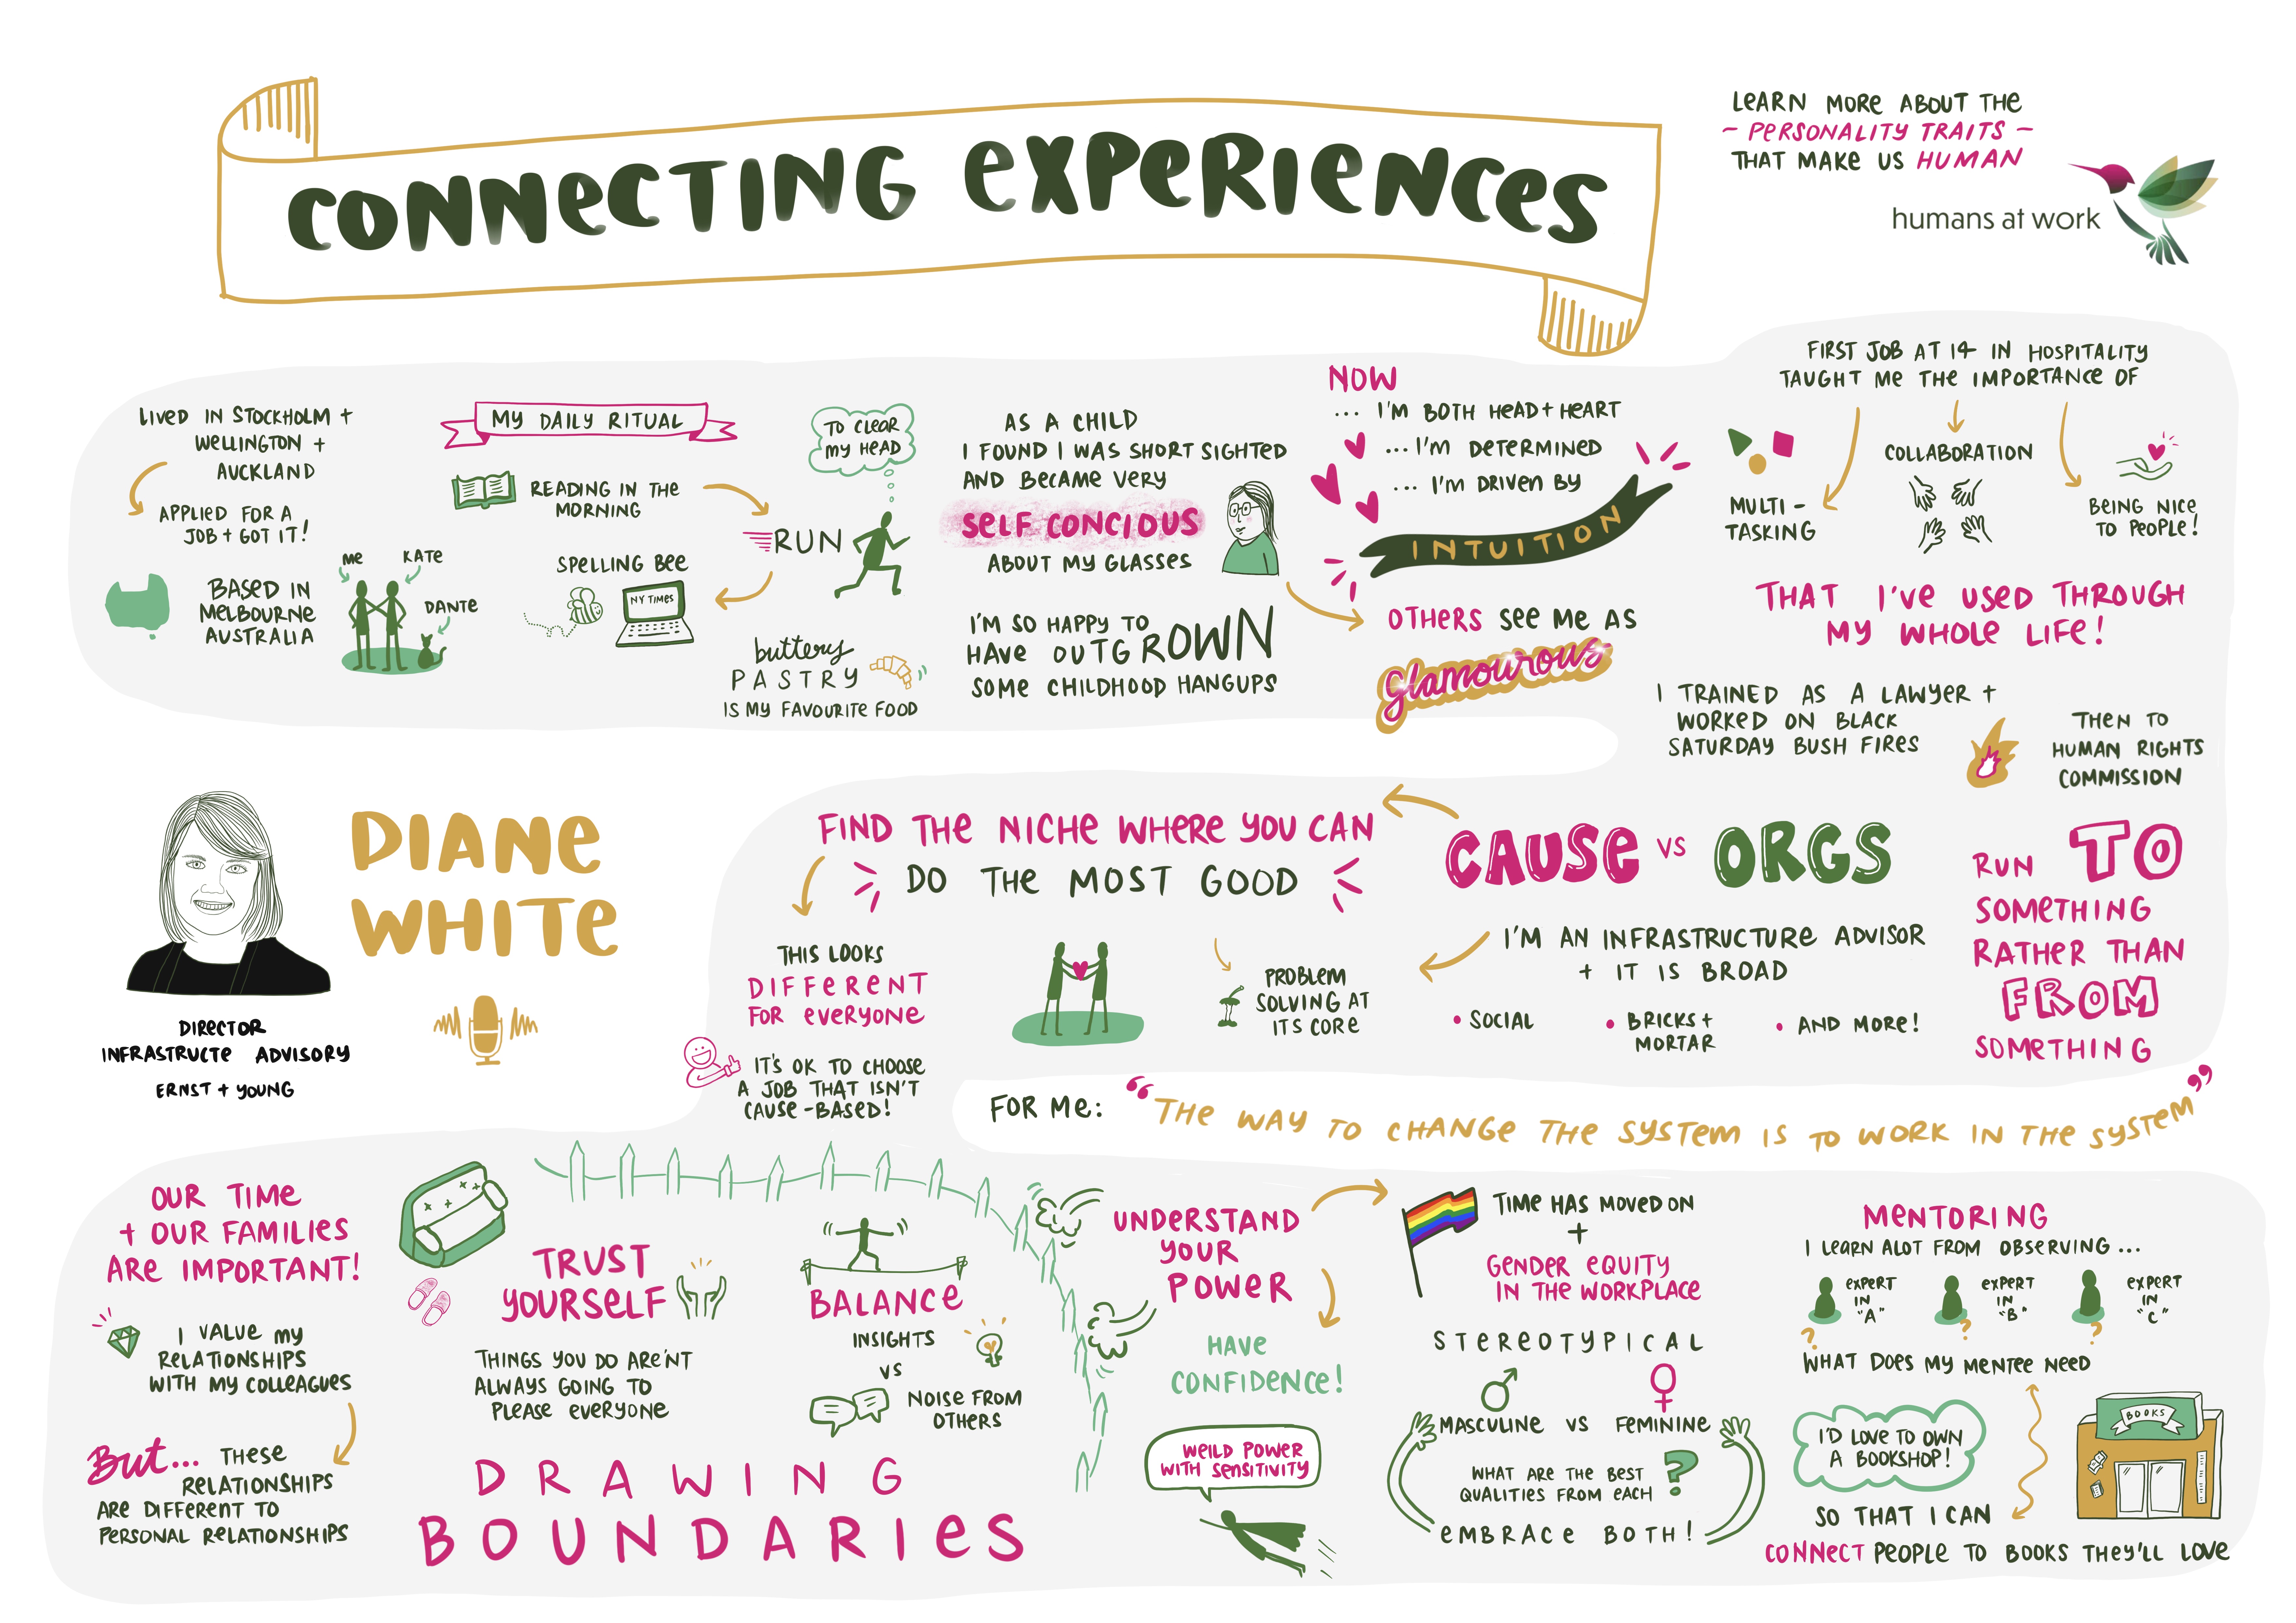 CONNECTING EXPERIENCES
LEARN MORE ABOUT THE
- PERSONALITY TRAITS -
THAT MAKE US HUMAN
humans at work
LIVED IN STOCKHOLM +
WELLINGTON +
AUCKLAND
APPLIED FOR A
JOB + GOT IT!
BASED IN
MELBOURNE
AUSTRALIA
ME
KATE
DANTE
MY DAILY RITUAL
READING IN THE
MORNING
TO CLEAR
MY HEAD
RUN
SPELLING BEE
NY TIMES
buttery
PASTRY
IS MY FAVOURITE FOOD
AS A CHILD
I FOUND I WAS SHORT SIGHTED
AND BECAME VERY
SELF CONCIOUS
ABOUT MY GLASSES
I'M SO HAPPY TO
HAVE OUTGROWN
SOME CHILDHOOD HANGUPS
NOW
... I'M BOTH HEAD + HEART
... I'M DETERMINED
... I'M DRIVEN BY
INTUITION
OTHERS SEE ME AS
glamourous
FIRST JOB AT 14 IN HOSPITALITY
TAUGHT ME THE IMPORTANCE OF
MULTI-
TASKING
COLLABORATION
BEING NICE
TO PEOPLE!
THAT I'VE USED THROUGH
MY WHOLE LIFE!
I TRAINED AS A LAWYER +
WORKED ON BLACK
SATURDAY BUSH FIRES
THEN TO
HUMAN RIGHTS
COMMISSION
RUN TO
SOMETHING
RATHER THAN
FROM
SOMETHING
CAUSE VS ORGS
I'M AN INFRASTRUCTURE ADVISOR
+ IT IS BROAD
• SOCIAL
• BRICKS +
MORTAR
• AND MORE!
FIND THE NICHE WHERE YOU CAN
DO THE MOST GOOD
THIS LOOKS
DIFFERENT
FOR EVERYONE
IT'S OK TO CHOOSE
A JOB THAT ISN'T
CAUSE-BASED!
PROBLEM
SOLVING AT
ITS CORE
DIANE
WHITE
DIRECTOR
INFRASTRUCTE ADVISORY
ERNST + YOUNG
FOR ME:
"THE WAY TO CHANGE THE SYSTEM IS TO WORK IN THE SYSTEM"
OUR TIME
+ OUR FAMILIES
ARE IMPORTANT!
I VALUE MY
RELATIONSHIPS
WITH MY COLLEAGUES
But... THESE
RELATIONSHIPS
ARE DIFFERENT TO
PERSONAL RELATIONSHIPS
TRUST
YOURSELF
THINGS YOU DO ARE'NT
ALWAYS GOING TO
PLEASE EVERYONE
BALANCE
INSIGHTS
VS
NOISE FROM
OTHERS
DRAWING
BOUNDARIES
UNDERSTAND
YOUR
POWER
HAVE
CONFIDENCE!
WEILD POWER
WITH SENSITIVITY
TIME HAS MOVED ON
+
GENDER EQUITY
IN THE WORKPLACE
STEREOTYPICAL
MASCULINE VS FEMININE
WHAT ARE THE BEST
QUALITIES FROM EACH ?
EMBRACE BOTH!
MENTORING
I LEARN ALOT FROM OBSERVING...
EXPERT
IN
"A"
EXPERT
IN
"B"
EXPERT
IN
"C"
? ? ?
WHAT DOES MY MENTEE NEED
I'D LOVE TO OWN
A BOOKSHOP!
BOOKS
SO THAT I CAN
CONNECT PEOPLE TO BOOKS THEY'LL LOVE